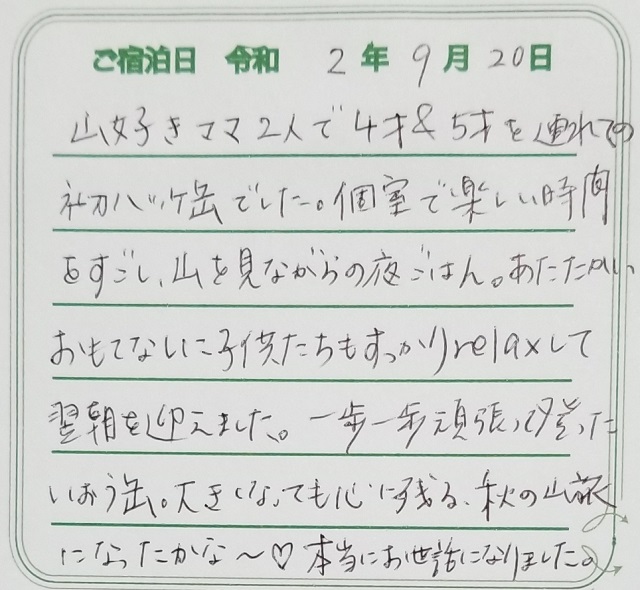 ご宿泊日 令和 2年 9月 20日
山好きママ2人で4才&5才を連れての
初八ヶ岳でした。個室で楽しい時間
をすごし、山を見ながらの夜ごはん。あたたかい
おもてなしに子供たちもすっかりrelaxして
翌朝を迎えました。一歩一歩頑張って登った
いおう岳。大きくなっても心に残る、秋の山旅
になったかな〜♡ 本当にお世話になりました。